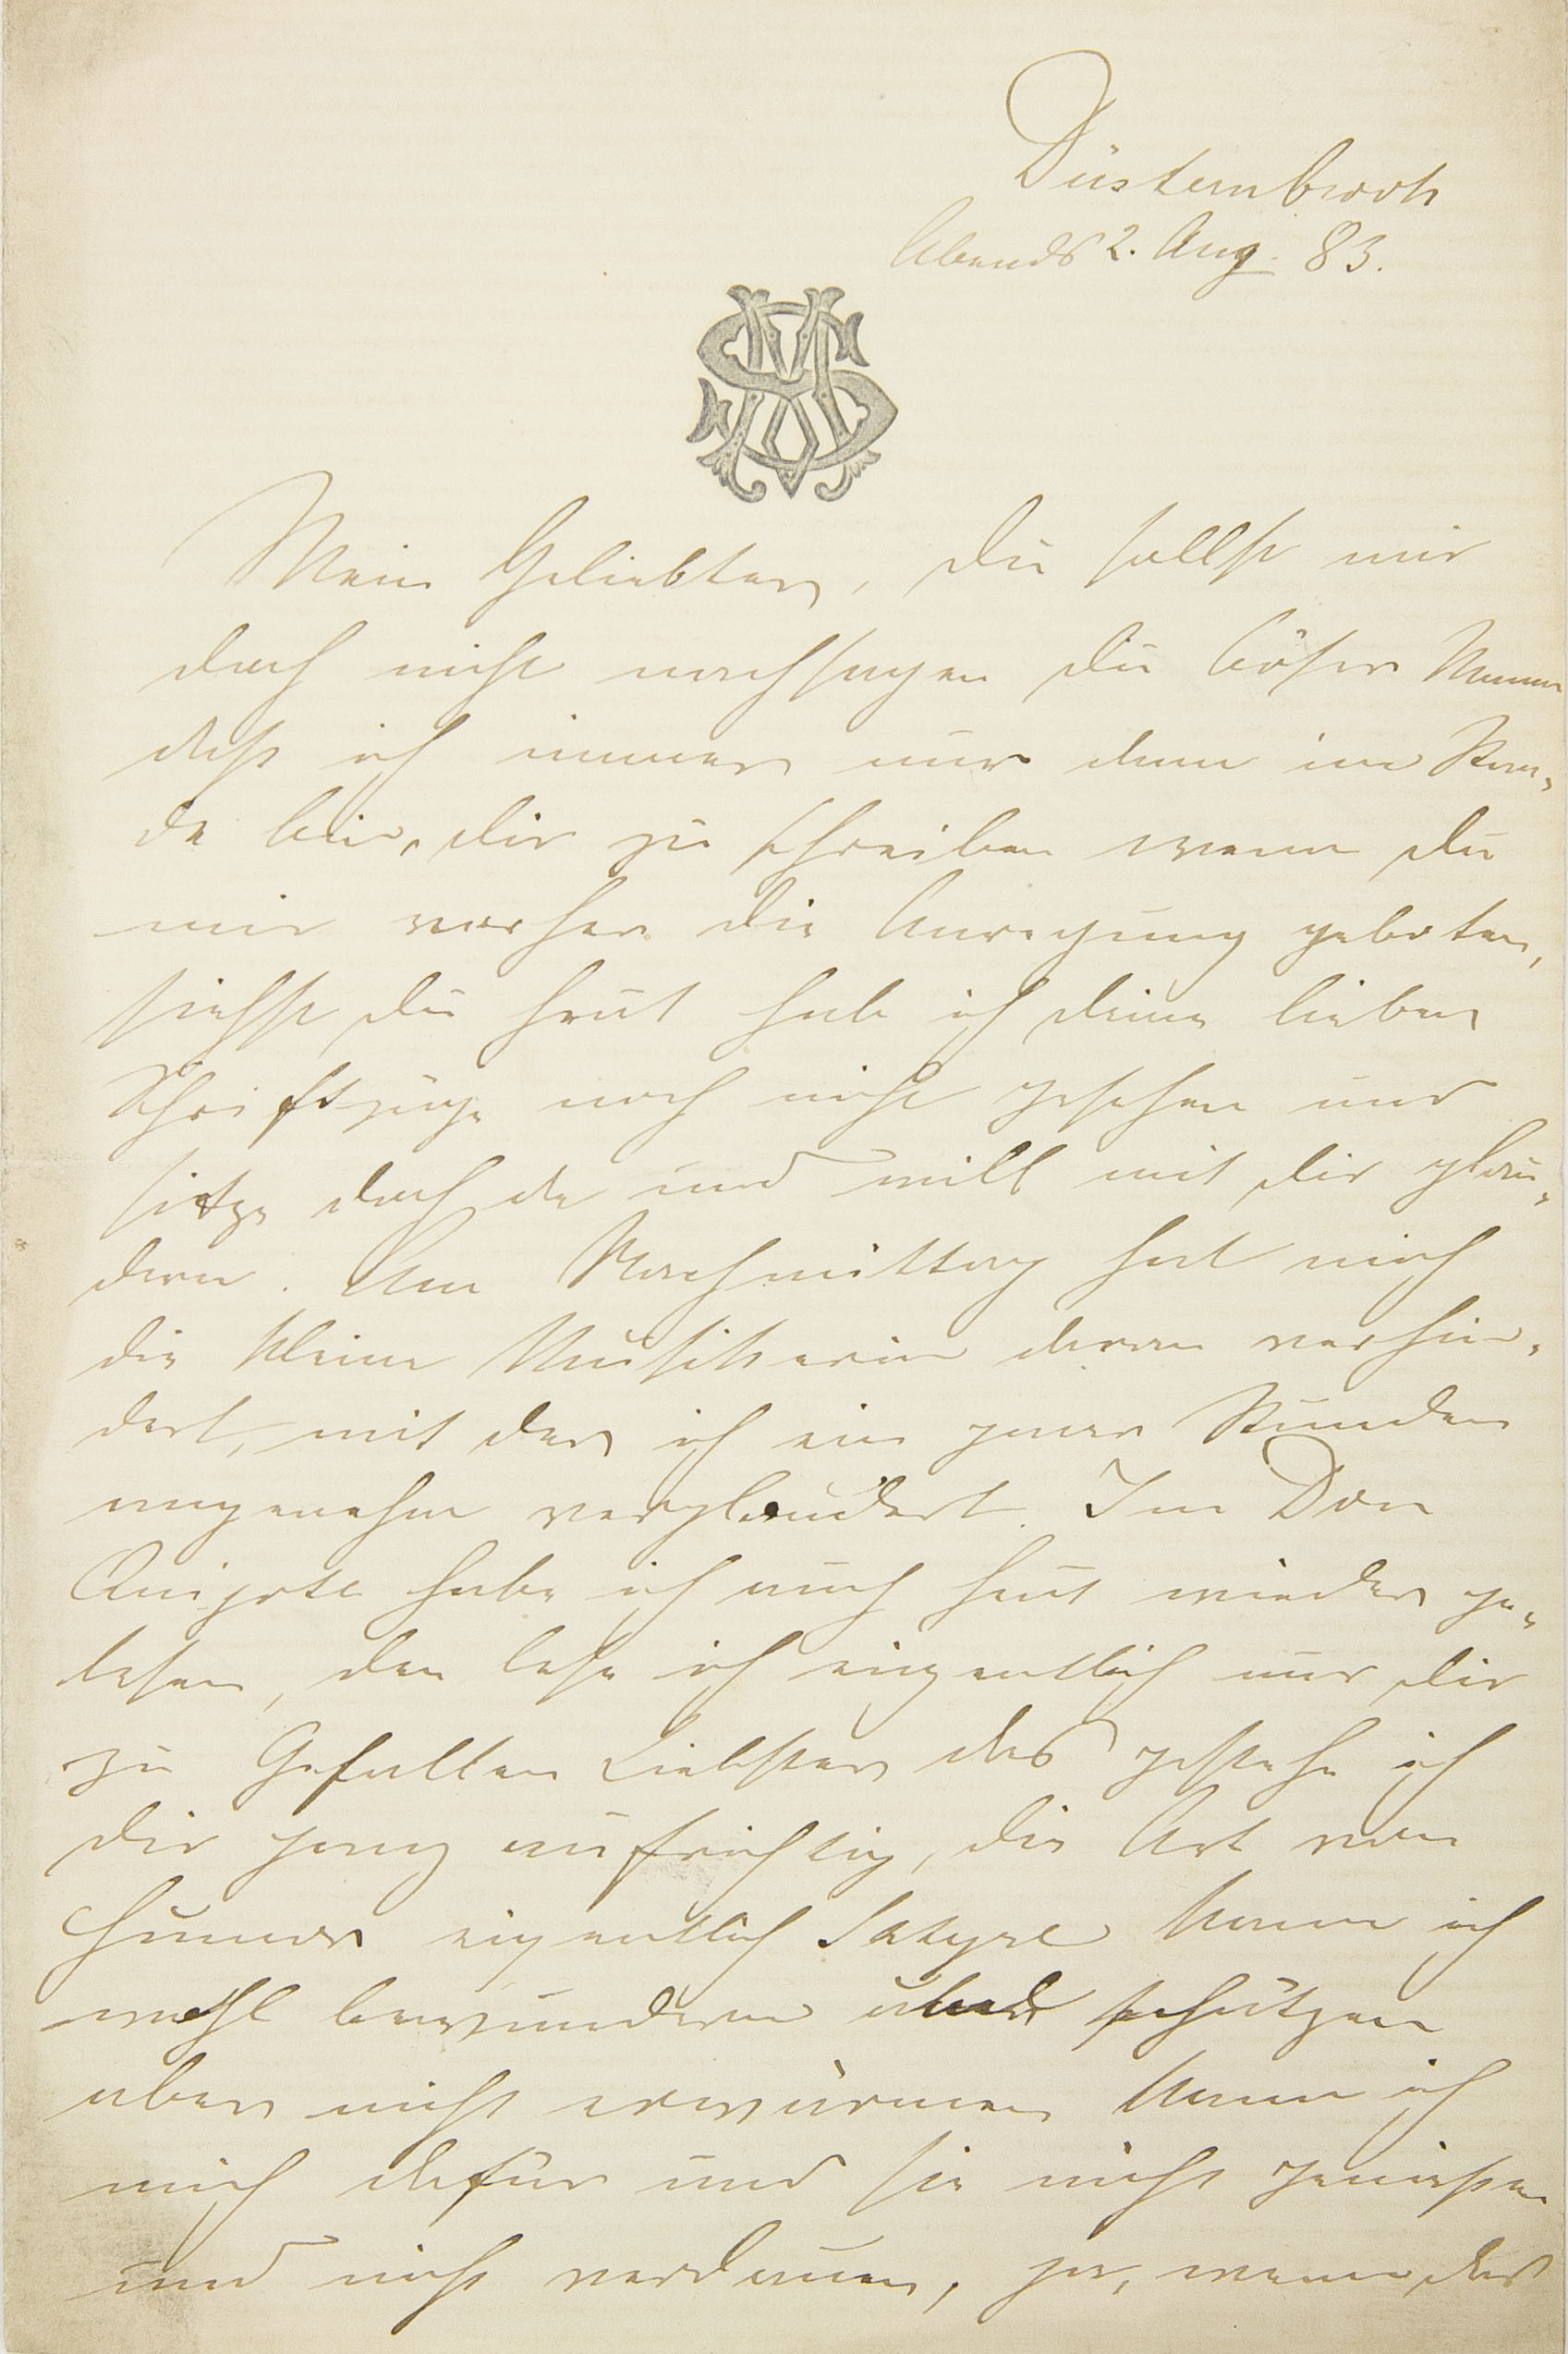 Düsternbrook
Abends 2. Aug. 83.
Mein Geliebter, du sollst mir
doch nicht nachsagen du böser Mann
daß ich immer nur dann im Stan-
de bin, dir zu schreiben wenn du
mir vorher die Anregung geboten,
siehst du heut hab ich deine lieben
Schriftzüge noch nicht gesehen und
sitze doch da und will mit dir plau-
dern. Am Nachmittag hat mich
die kleine Musikerin daran verhin-
dert, mit der ich ein paar Stunden
angenehm verplaudert. Im Don
Quijote habe ich auch heut wieder ge-
lesen, den lese ich eigentlich nur dir
zu Gefallen Liebster das gestehe ich
dir ganz aufrichtig, die Art von
Humor eigentlich Satyre kann ich
wohl bewundern und schätzen
aber nicht erwärmen kann ich
mich dafür und sie nicht genießen
und nicht verdauen, ja, wenn das